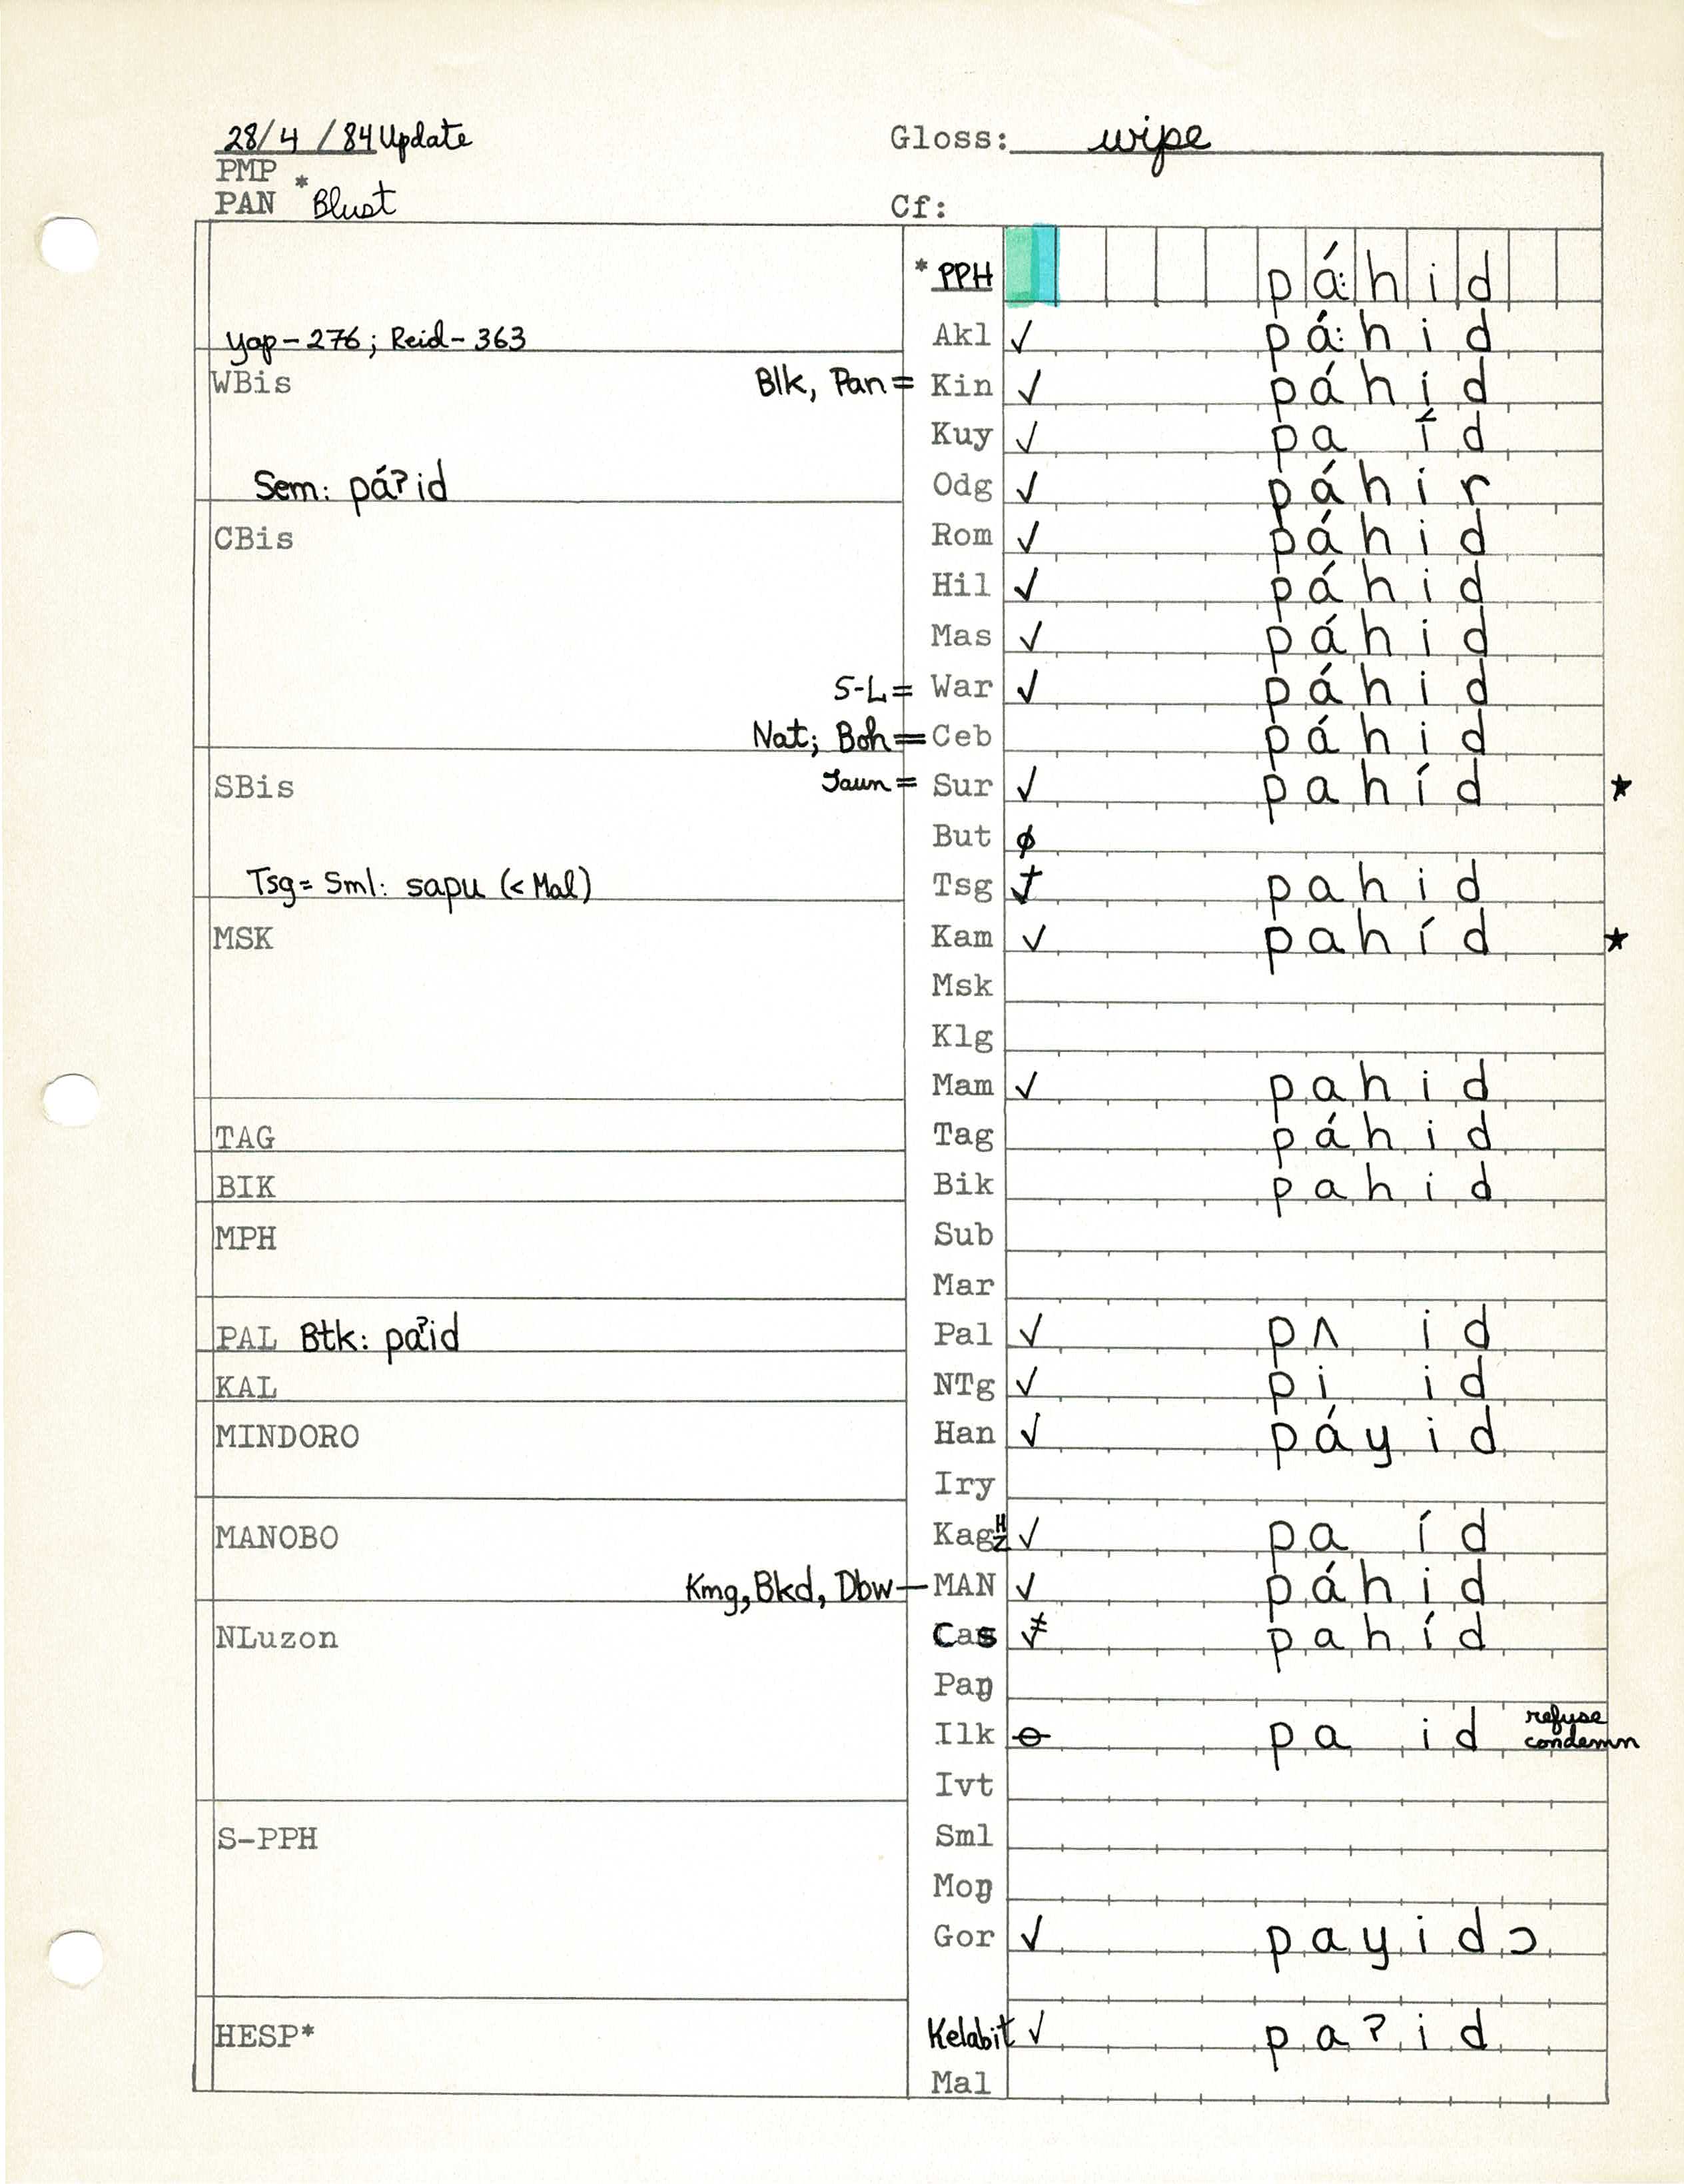 28/4/84 Update Gloss: wipe
PMP
PAN *Blust Cf:
*PPH pá:hid
Yap-276; Reid-363 Akl ✓ pá:hid
WBis Blk, Pan = Kin ✓ páhid
Kuy ✓ pa íd
Sem: páʔid Odg ✓ páhir
CBis Rom ✓ páhid
Hil ✓ páhid
Mas ✓ páhid
S-L = War ✓ páhid
Nat; Boh = Ceb páhid
SBis Jaun = Sur ✓ pahíd ★
But ø
Tsg = Sml: sapu (< Mal) Tsg † pahid
MSK Kam ✓ pahíd ★
Msk
Klg
Mam ✓ pahid
TAG Tag páhid
BIK Bik pahid
MPH Sub
Mar
PAL Btk: paʔid Pal ✓ pʌ id
KAL NTg ✓ pi id
MINDORO Han ✓ páyid
Iry
MANOBO Kag H Z ✓ pa íd
Kmg, Bkd, Dbw — MAN ✓ páhid
NLuzon Cas ✓≠ pahíd
Paŋ
Ilk ⊖ pa id refuse
condemn
Ivt
S-PPH Sml
Moŋ
Gor ✓ payidɔ
HESP* Kelabit ✓ paʔid
Mal